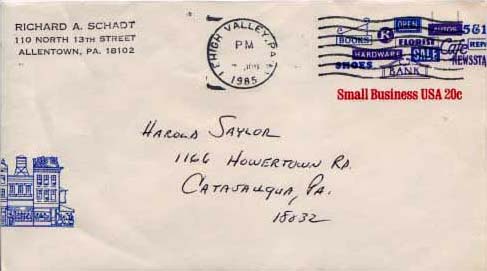 RICHARD A. SCHADT
110 NORTH 13TH STREET
ALLENTOWN, PA. 18102
LEHIGH VALLEY, PA
PM
1985
OPEN
AUTOS
561
BOOKS
K
FLORIST
Café
HARDWARE
SALE
SHOES
BANK
NEWSSTA
Small Business USA 20c
Harold Saylor
1166 Howertown Rd.
Catasauqua, Pa.
18032